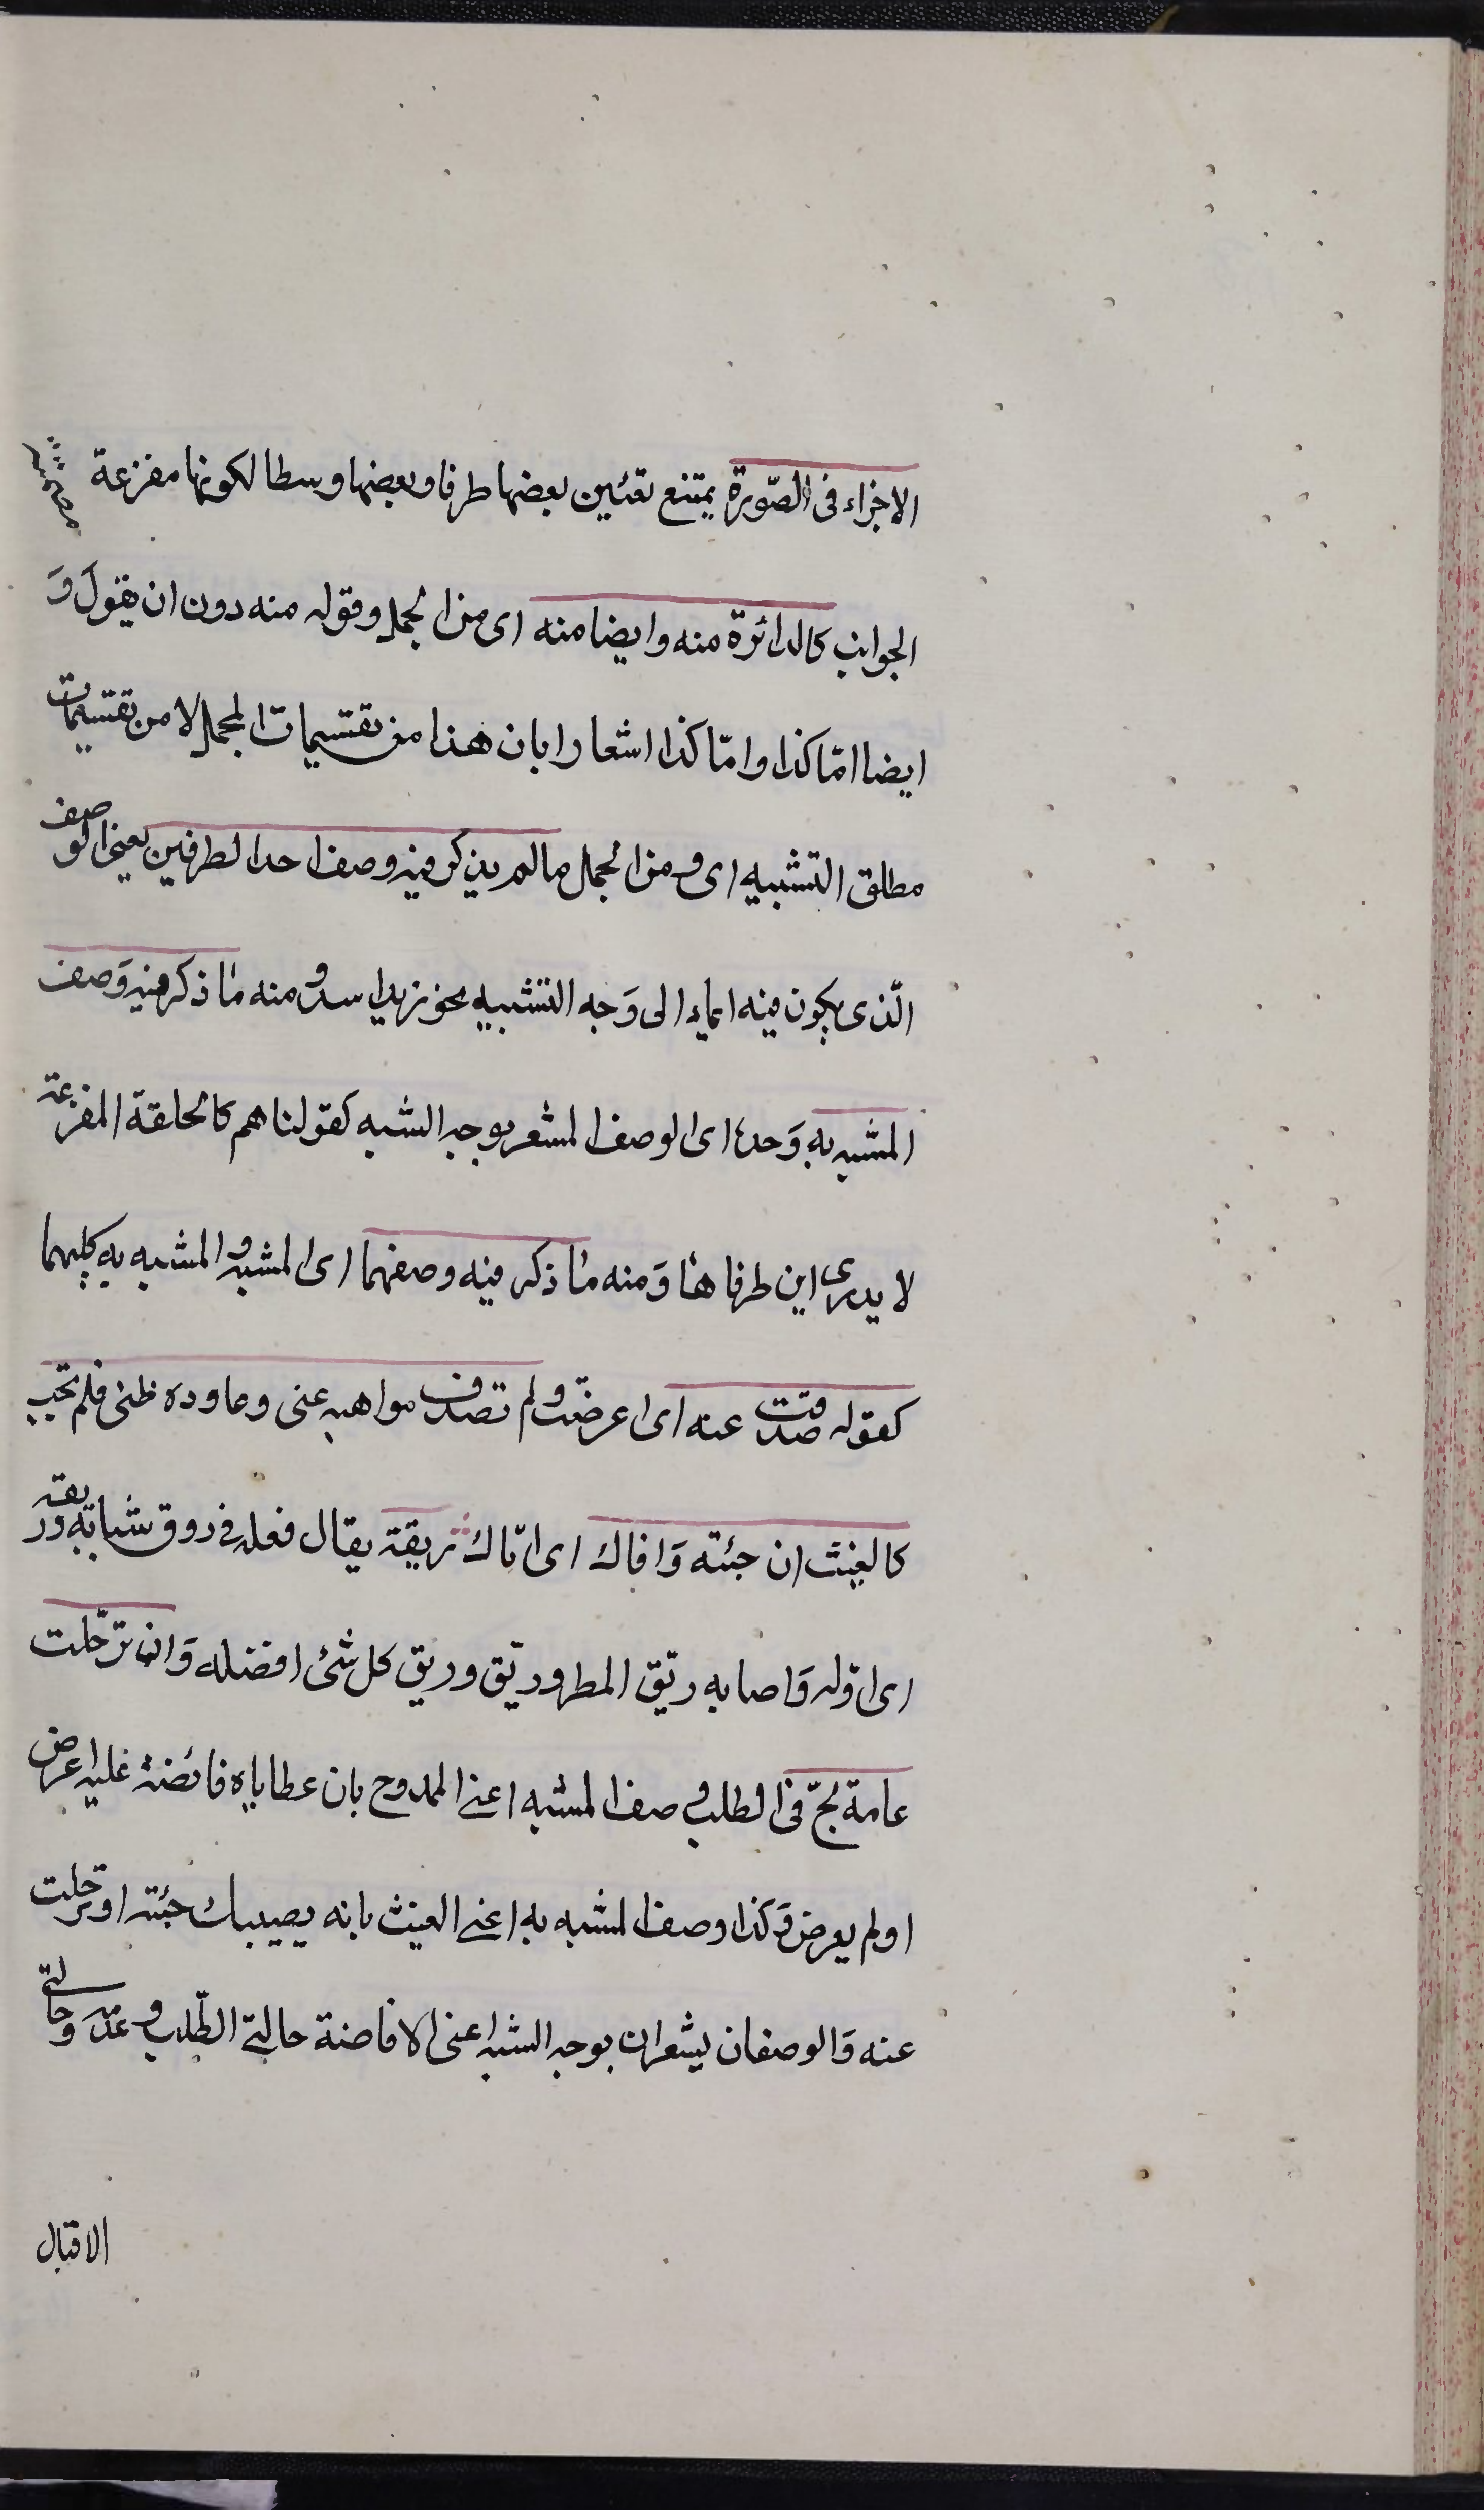 الاجزاء فى الصّورة يمتنع تعئين بعضها طرفا وبعضها وسطا لكونها مفرغة
الجوانب كالدائرة منه وايضا منه اى من المجمل وقوله منه دون ان يقول وَ
ايضا امّا كذا وامّا كذا اشعارا بان هذا من تقسيمات المجمل لا من تقسيمات
مطلق التشبيه اى ومن المجمل ما لم يذكر فيه وصف احد الطرفين يعنى الوصف
الّذى يكون فيه ايماء الى وَجه التشبيه نحو زيد اسد ومنه ما ذكر فيه وَصف
المشبه به وَحده اى الوصف المشعر بوجه الشبه كقولنا هم كالحلقة المفرغة
لا يدرى اين طرفاها وَمنه ما ذكر فيه وصفهما اى المشبه والمشبه به كليهما
كقوله صدفت عنه اى اعرضت ولم تصدف مواهبه عنى وعاوده ظنى فلم يخب
كالغيث ان جئته وَافاك اى اتاك ريقه يقال فعله فى روق شبابه وريقه
اى اوّله وَاصابه ريّق المطر وريّق وريق كل شئ افضله وَان ترحّلت
عامة لجّ فى الطلب وصف المشبه اعنى الممدوح بان عطاياه فائضة عليه اعرض
او لم يعرض وَكذا وصف المشبه به اعنى الغيث بانه يصيبك جئته او ترحلت
عنه وَالوصفان يشعران بوجه الشبه اعنى الافاضة حالتى الطّلب وعدمه وحالتى
الاقبال